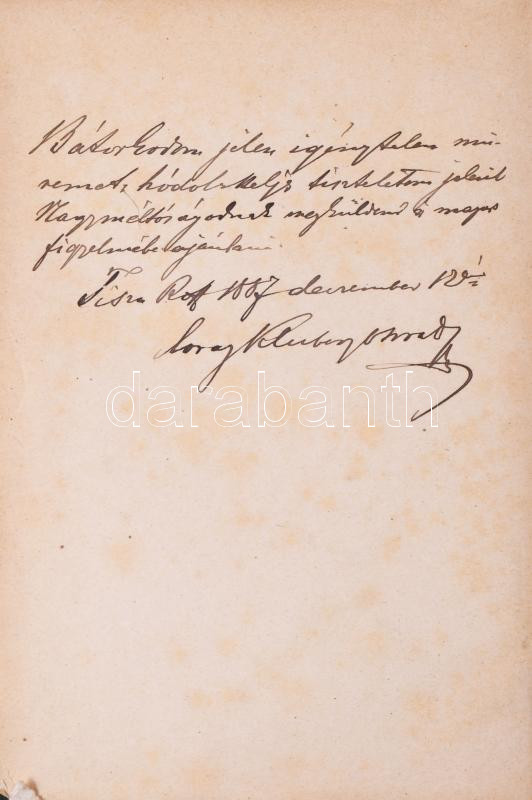 Bátorkodom jelen igénytelen mü-
vemet, hódolatteljes tiszteletem jeleül
Nagyméltóságodnak megküldeni 's magas
figyelmébe ajánlani.
Tisza Roff 1887 december 18án
darabanth